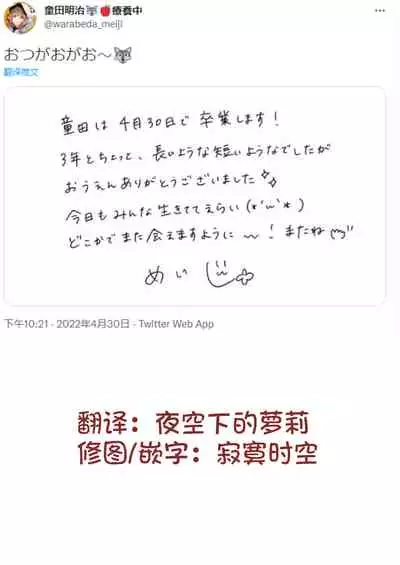 童田明治🐺🍎療養中
@warabeda_meiji
おつがおがお〜🐺
翻译推文
童田は 4月30日で 卒業します!
3年とちょっと、長いような短いようなでしたが
おうえんありがとうございました
今日もみんな生きててえらい(*'ω'*)
どこかでまた会えますように〜!またね
めいじ
下午10:21 · 2022年4月30日 · Twitter Web App
翻译：夜空下的萝莉
修图/嵌字：寂寞时空